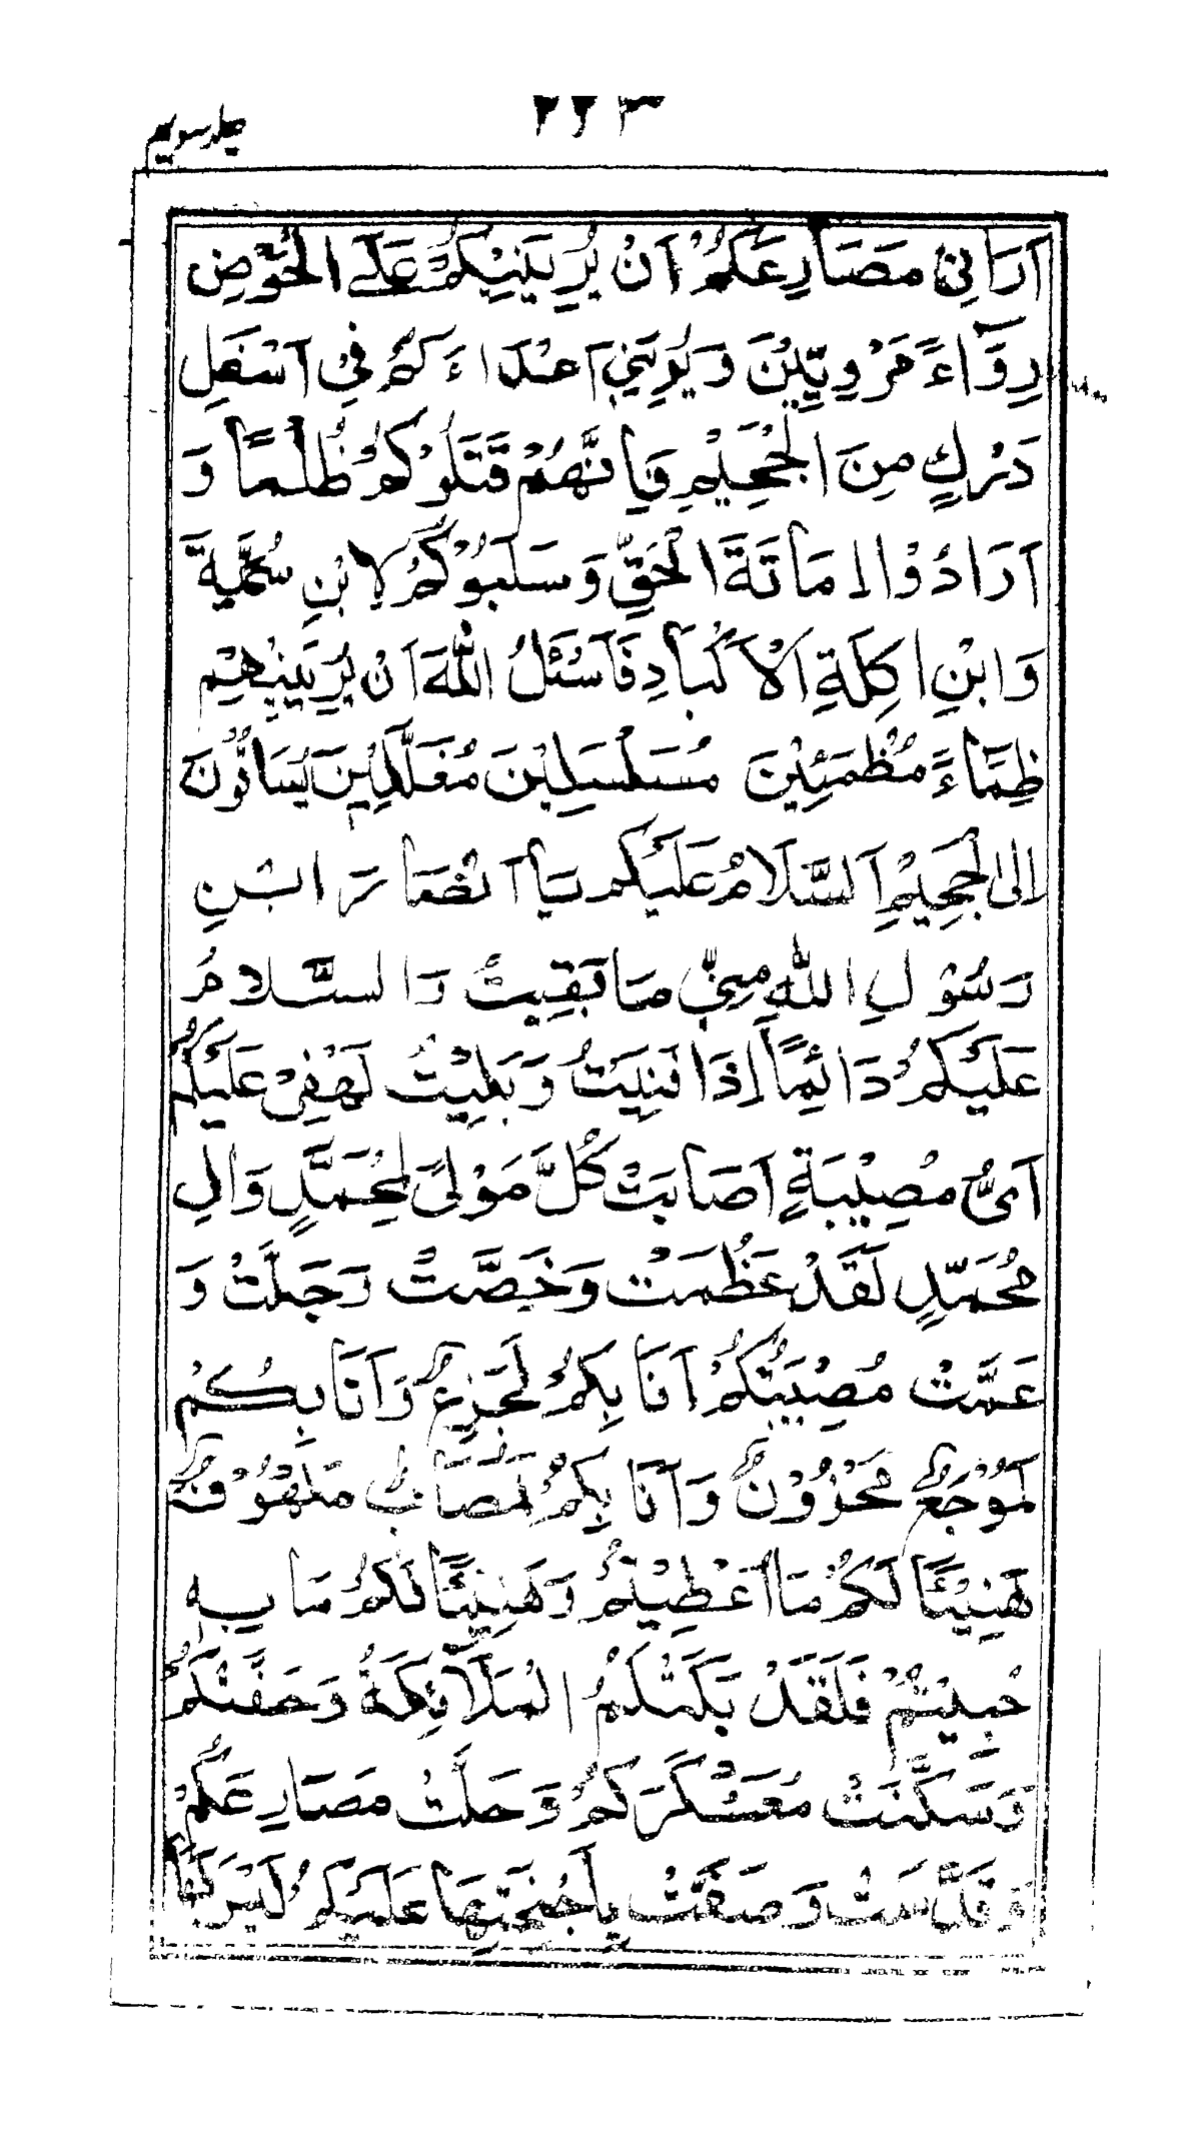 جلد سویم
۲۲۳
اَرَانِیْ مَصَارِعَكُمْ اَنْ یُرِیَنِیْكُمْ عَلَی الْحَوْضِ
رِوَآءً مَرْوِیِّیْنَ وَیُرِیَنِیْ اَعْدَاءَكُمْ فِیْ اَسْفَلِ
دَرْكٍ مِنَ الْجَحِیْمِ فَاِنَّهُمْ قَتَلُوْكُمْ ظُلْمًا وَ
اَرَادُوْا اِمَاتَةَ الْحَقِّ وَسَلَبُوْكُمْ لِاِبْنِ سُمَیَّةَ
وَابْنِ اٰكِلَةِ الْاَكْبَادِ فَاَسْئَلُ اللّٰهَ اَنْ یُرِیَنِیْهِمْ
ظِمَآءً مُظْمَئِیْنَ مُسَلْسَلِیْنَ مُغَلَّلِیْنَ یُسَاقُوْنَ
اِلَی الْجَحِیْمِ اَلسَّلَامُ عَلَیْكُمْ یَا اَنْصَارَ ابْنِ
رَسُوْلِ اللّٰهِ مِنِّیْ مَا بَقِیْتُ وَالسَّلَامُ
عَلَیْكُمْ دَائِمًا اِذَا فَنِیْتُ وَبَلِیْتُ لَهْفِیْ عَلَیْكُمْ
اَیُّ مُصِیْبَةٍ اَصَابَتْ كُلَّ مَوْلًی لِمُحَمَّدٍ وَاٰلِ
مُحَمَّدٍ لَقَدْ عَظُمَتْ وَخَصَّتْ وَجَلَّتْ وَ
عَمَّتْ مُصِیْبَتُكُمْ اَنَا بِكُمْ لَجَزِعٌ وَاَنَا بِكُمْ
لَمُوْجَعٌ مَحْزُوْنٌ وَاَنَا بِكُمْ لَمُصَابٌ مَلْهُوْفٌ
هَنِیْئًا لَكُمْ مَا اُعْطِیْتُمْ وَهَنِیْئًا لَكُمْ مَا بِهٖ
حُبِیْتُمْ فَلَقَدْ بَكَتْكُمُ الْمَلَآئِكَةُ وَحَفَّتْكُمْ
وَسَكَنَتْ مُعَسْكَرَكُمْ وَحَلَّتْ مَصَارِعَكُمْ
وَقَدَّسَتْ وَصَفَّتْ بِاَجْنِحَتِهَا عَلَیْكُمْ لَیْسَ لَهَا